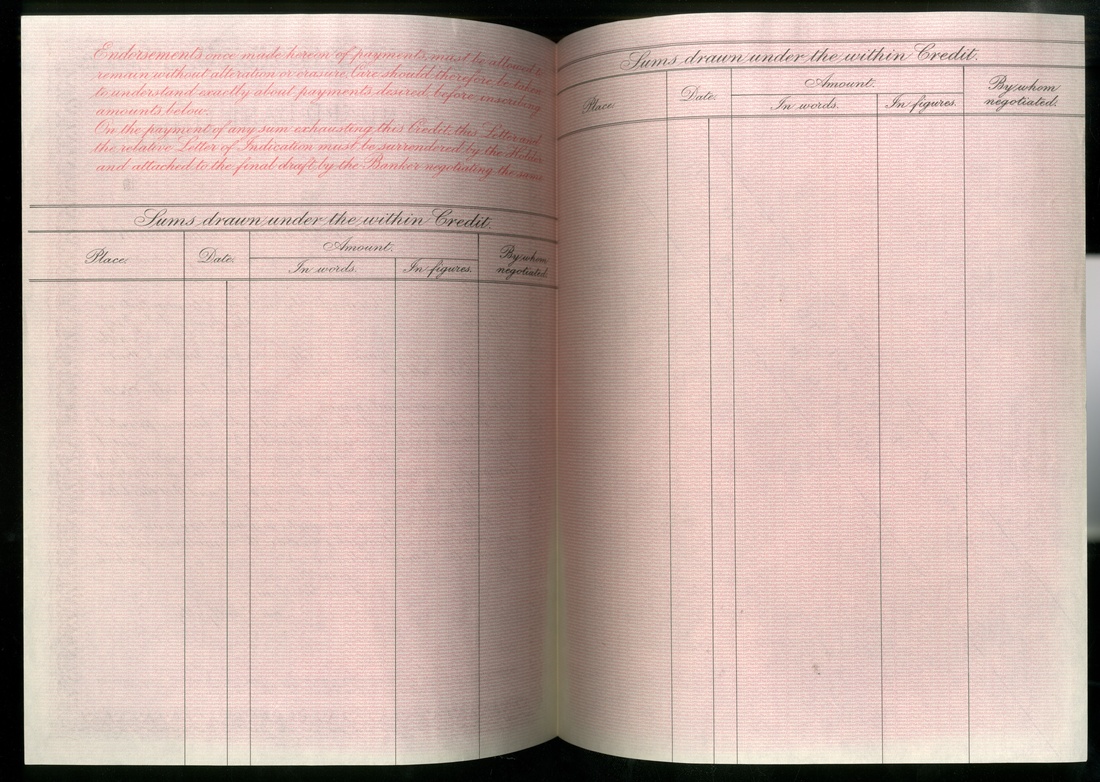 Endorsements once made herein of payments, must be allowed to
remain without alteration or erasure. Care should therefore be taken
to understand exactly about payments desired before inscribing
amounts below.
On the payment of any sum exhausting this Credit, this Letter and
the relative Letter of Indication must be surrendered by the Holder
and attached to the final draft by the Banker negotiating the same
Sums drawn under the within Credit.
Place. Date. Amount. By whom
In words. In figures. negotiated.
Sums drawn under the within Credit.
Place. Date. Amount. By whom
In words. In figures. negotiated.